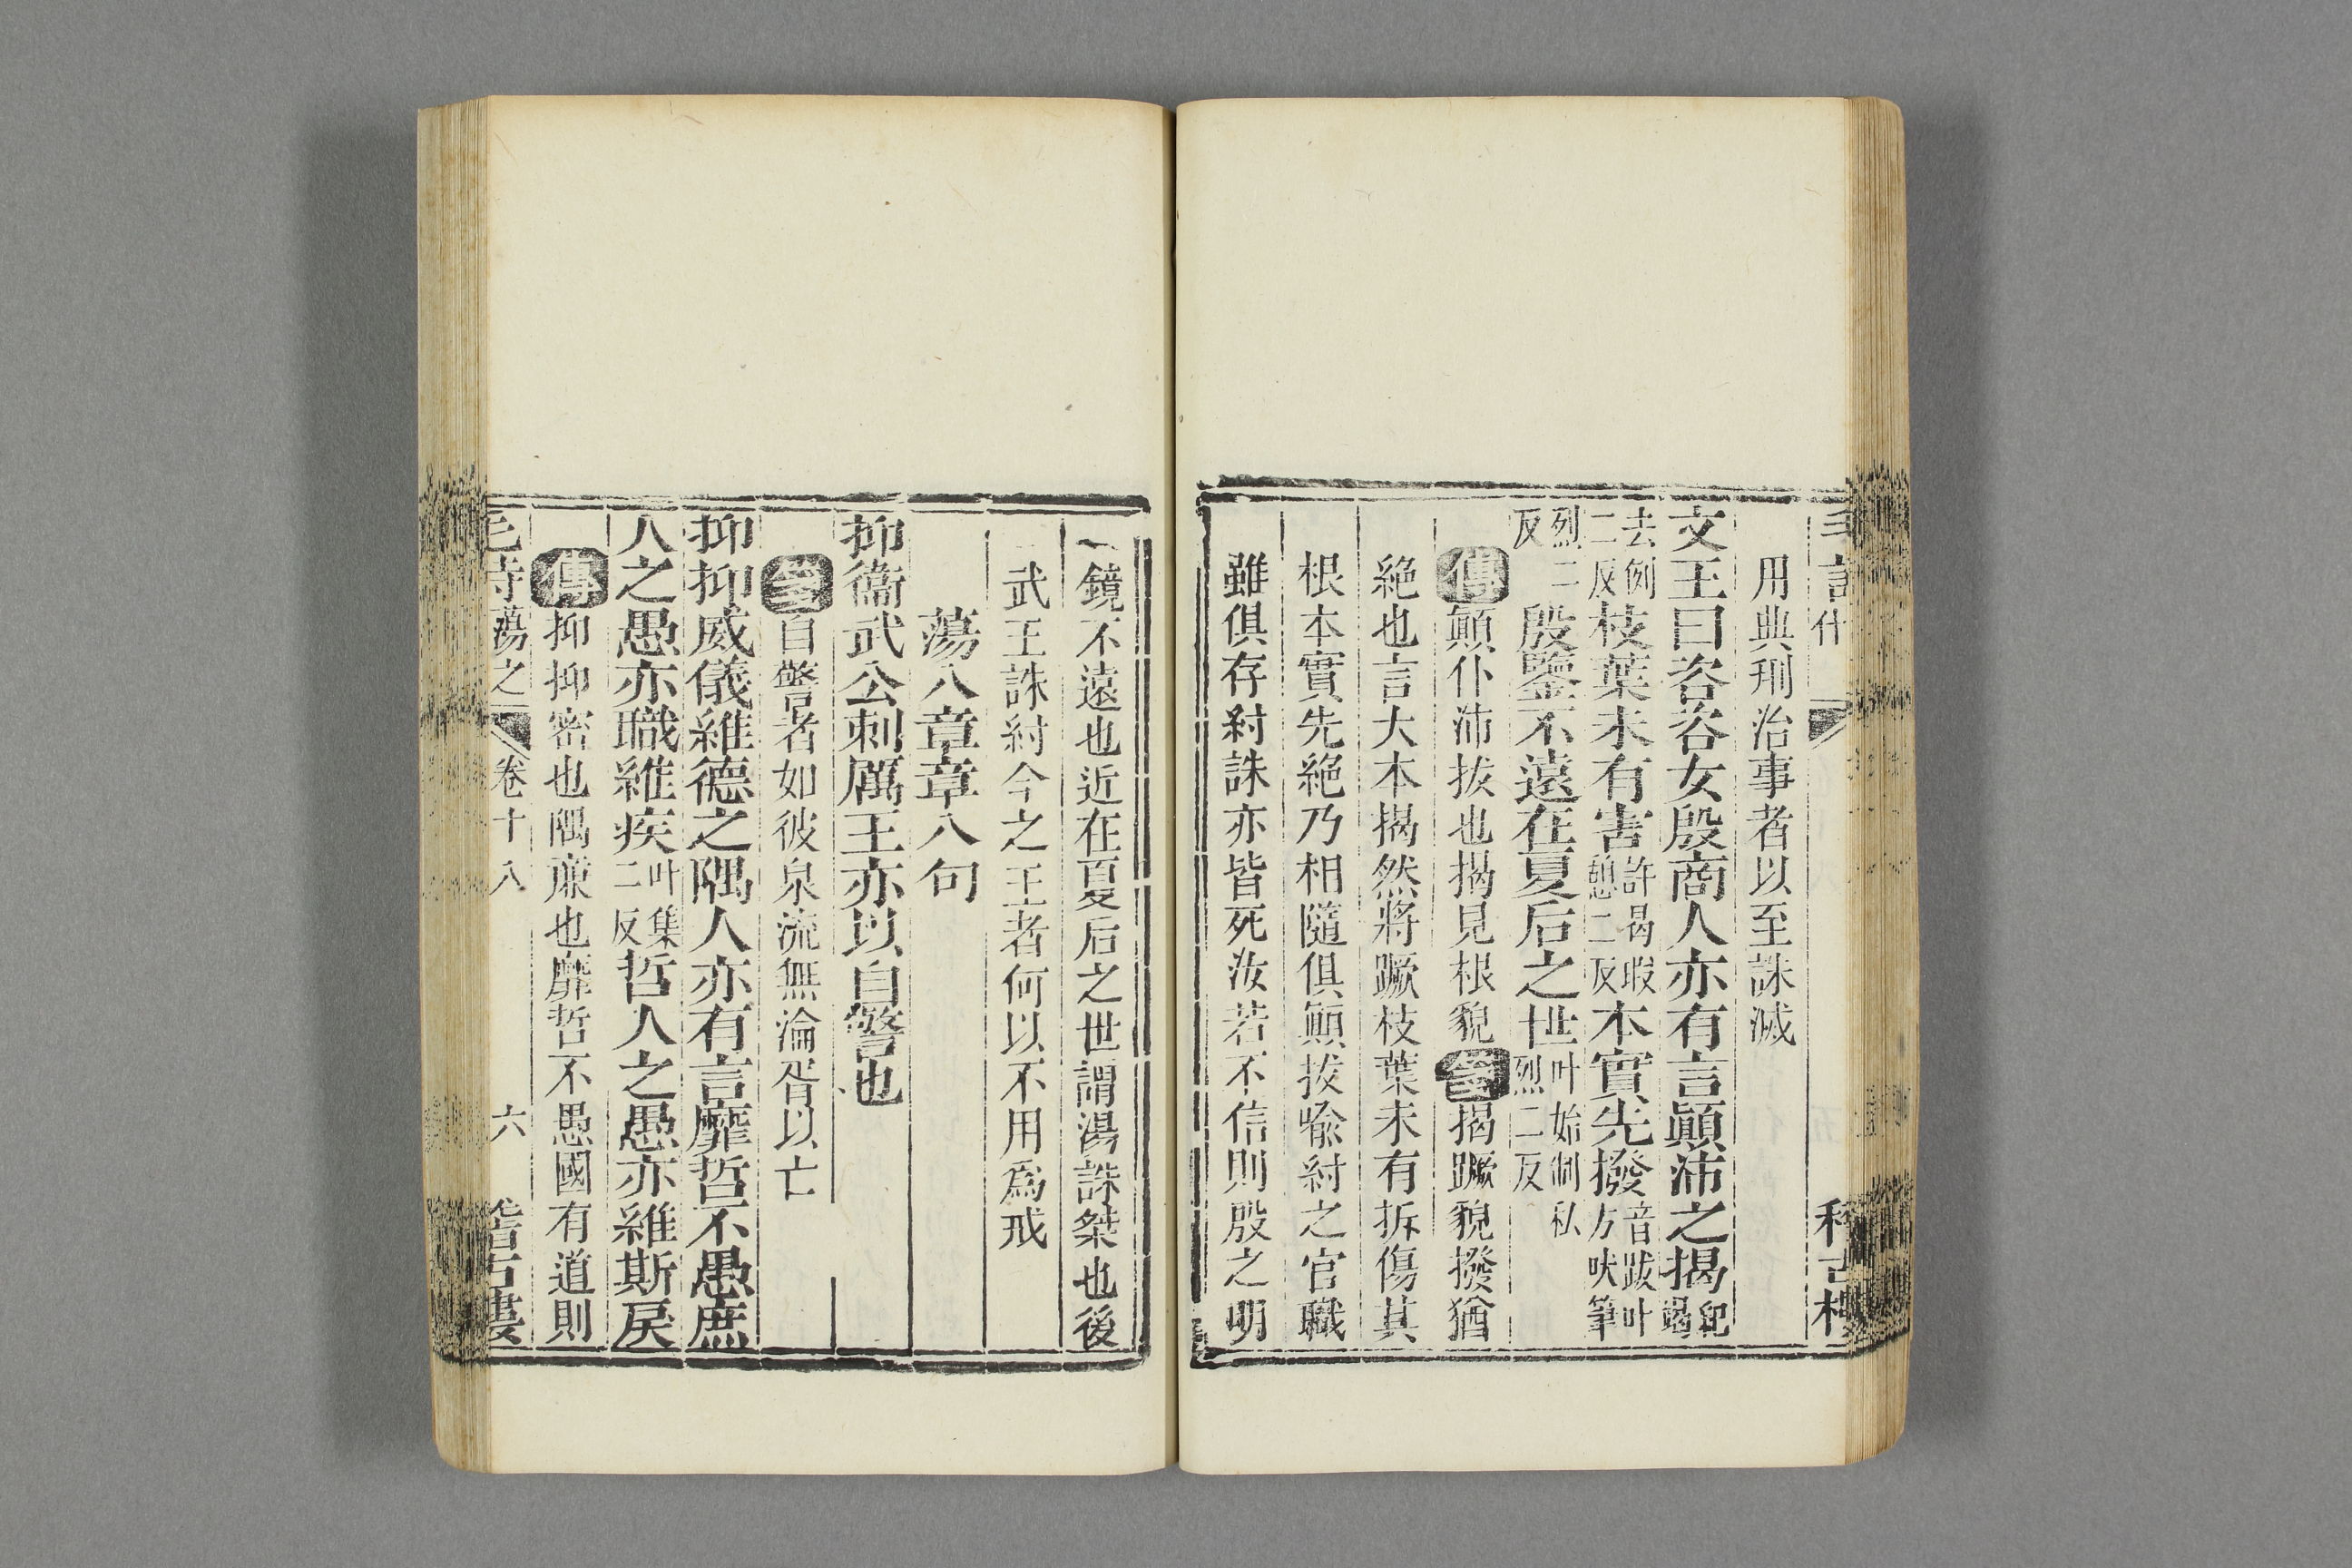 用典刑治事者以至誅滅
文王曰咨咨女殷商人亦有言顚沛之揭紀竭
去例二反枝葉未有害許曷瑕憩二反本實先撥音跋叶方吠筆
烈二反殷鑒不遠在夏后之世叶始制私烈二反
傳顚仆沛拔也揭見根貌箋揭蹶貌撥猶
絶也言大木揭然將蹶枝葉未有折傷其
根本實先絶乃相隨俱顚拔喩紂之官職
雖俱存紂誅亦皆死汝若不信則殷之明
鏡不遠也近在夏后之世謂湯誅桀也後
武王誅紂今之王者何以不用爲戒
蕩八章章八句
抑衞武公刺厲王亦以自警也
箋自警者如彼泉流無淪胥以亡
抑抑威儀維德之隅人亦有言靡哲不愚庶
人之愚亦職維疾叶集二反哲人之愚亦維斯戾
傳抑抑密也隅廉也靡哲不愚國有道則
蕩之 卷十八 六